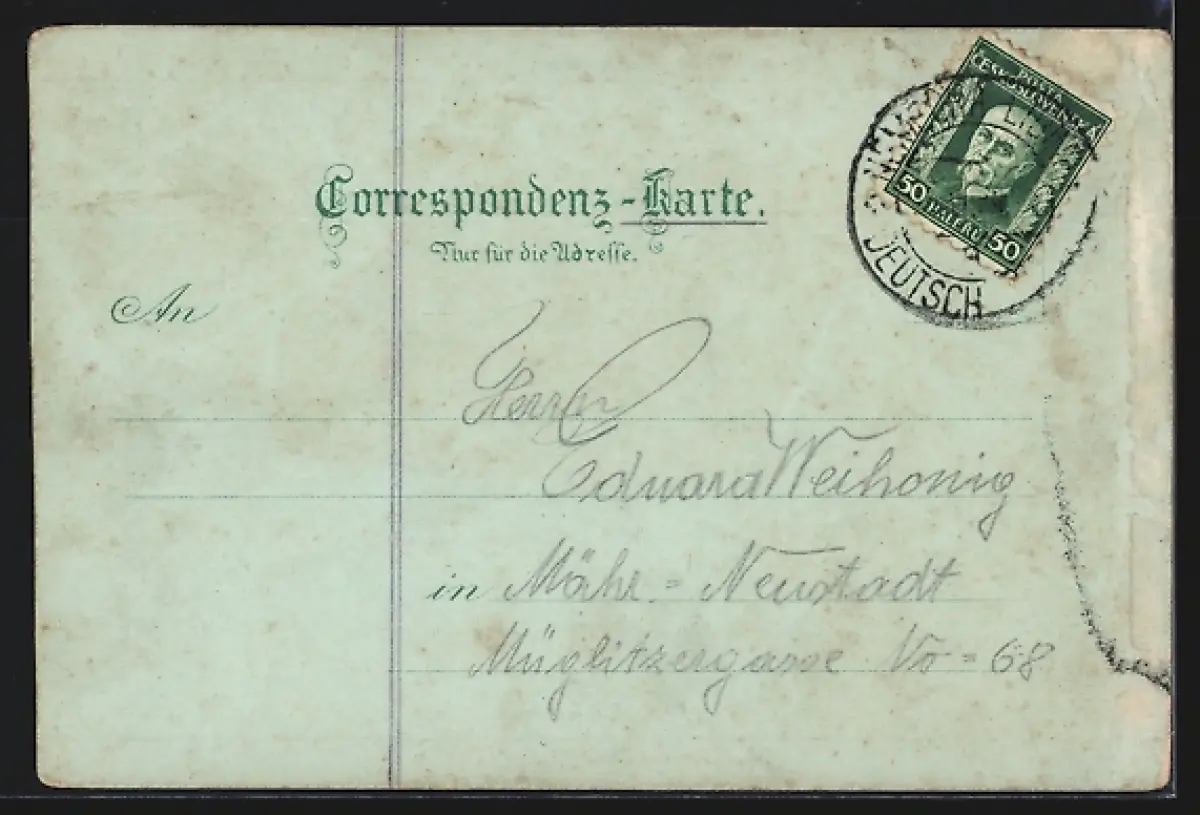 Correspondenz-Karte.
Nur für die Adresse.
ČESKOSLOVENSKÁ
50 HALÉŘŮ 50
DEUTSCH
An
Herrn
Eduard Weihonig
in Mähr. = Neustadt
Müglitzergasse No = 68